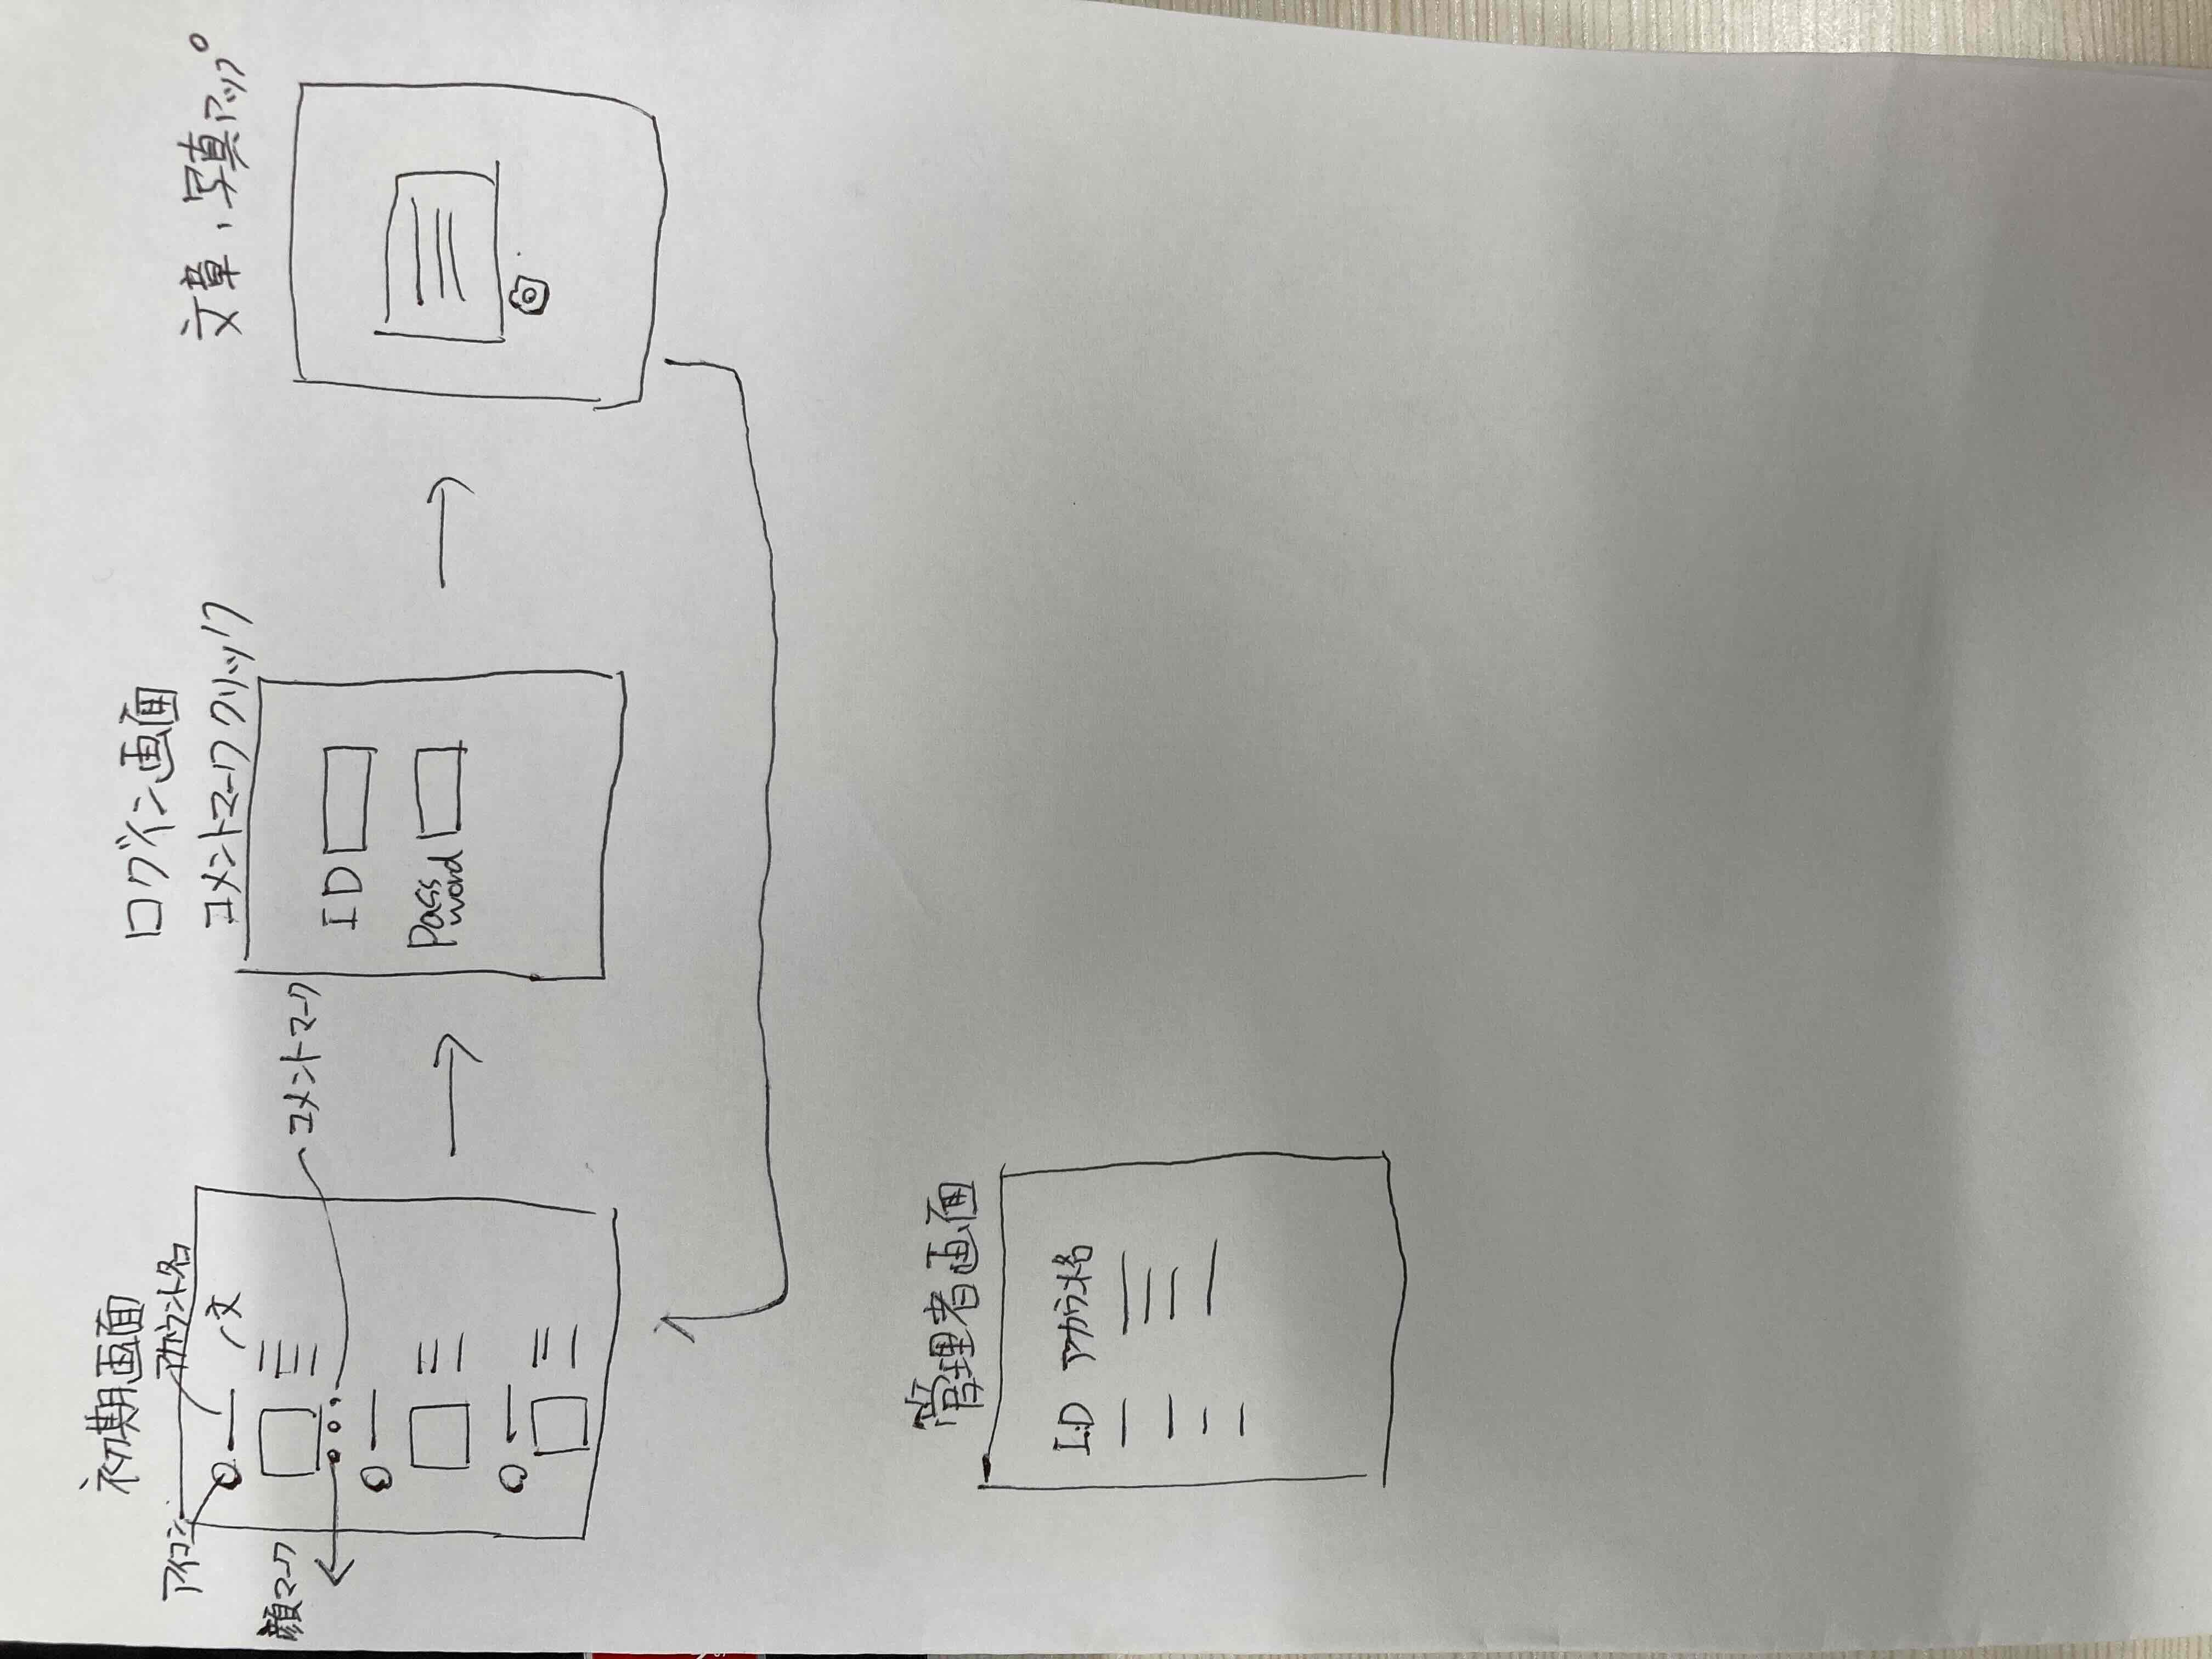 初期画面
アイコン
アカウント名
文
顔マーク
コメントマーク
ログイン画面
コメントマーククリック
ID
Pass
word
文章、写真アップ
管理者画面
ID アカウント名